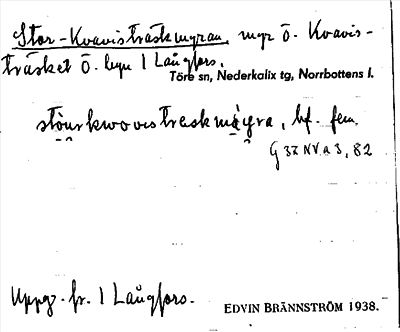 Stor-Kvavisträskmyran, myr Ö. Kvavis-
träsket Ö. byn 1 Långfors.
Töre sn, Nederkalix tg, Norrbottens l.
bf. fem.
G 37 NV a 3, 82
Uppg. fr. 1 Långfors.
EDVIN BRÄNNSTRÖM 1938.